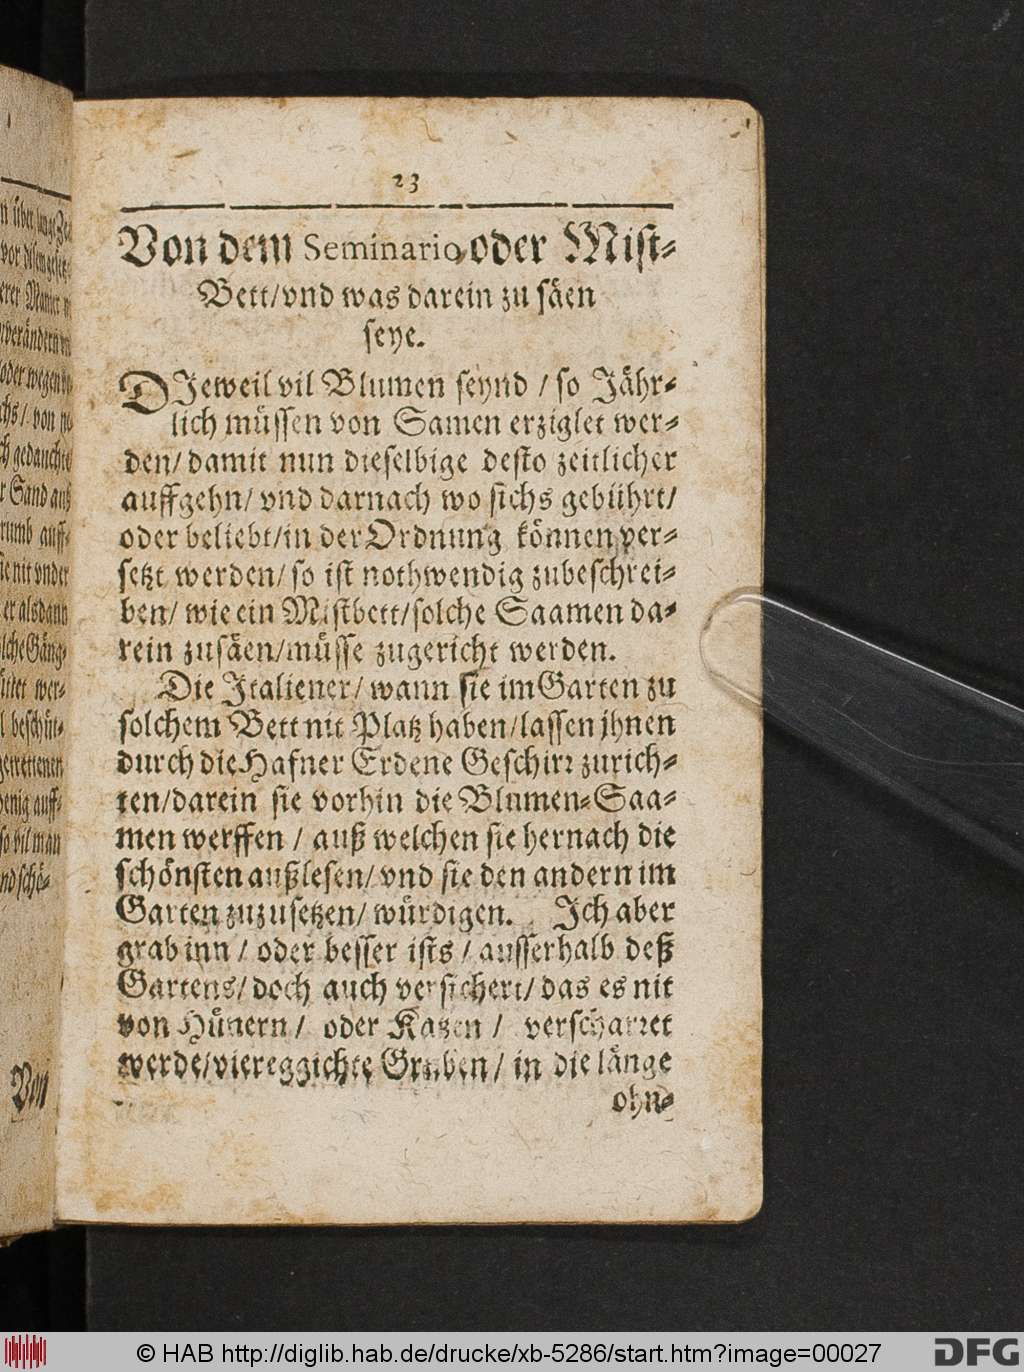 23
Von dem Seminario, oder Mist-
Bett/ vnd was darein zu säen
seye.
DIeweil vil Blumen seynd / so Jähr-
lich müssen von Samen erziglet wer-
den/ damit nun dieselbige desto zeitlicher
auffgehn/ vnd darnach wo sichs gebührt/
oder beliebt/ in der Ordnung können ver-
setzt werden/ so ist nothwendig zubeschrei-
ben/ wie ein Mistbett/ solche Saamen da-
rein zusäen/ müsse zugericht werden.
Die Italiener/ wann sie im Garten zu
solchem Bett nit Platz haben/ lassen jhnen
durch die Hafner Erdene Geschirr zurich-
ten/ darein sie vorhin die Blumen-Saa-
men werffen / auß welchen sie hernach die
schönsten außlesen/ vnd sie den andern im
Garten zuzusetzen/ würdigen. Ich aber
grab inn / oder besser ists / ausserhalb deß
Gartens/ doch auch versichert/ das es nit
von Hünern / oder Katzen / verscharret
werde/ viereggichte Gruben/ in die länge
ohn-
n über lange Zeit
erer Manier
verändern
oder wegen
chs/ von
ch gedauchte
r Sand auß
rumb auff-
ie nit vnder
er alsdann
lche Gäng
üttet wer-
l beschüt-
getrettenen
wenig auff-
so vil man
nd schö-
Von
© HAB http://diglib.hab.de/drucke/xb-5286/start.htm?image=00027
DFG